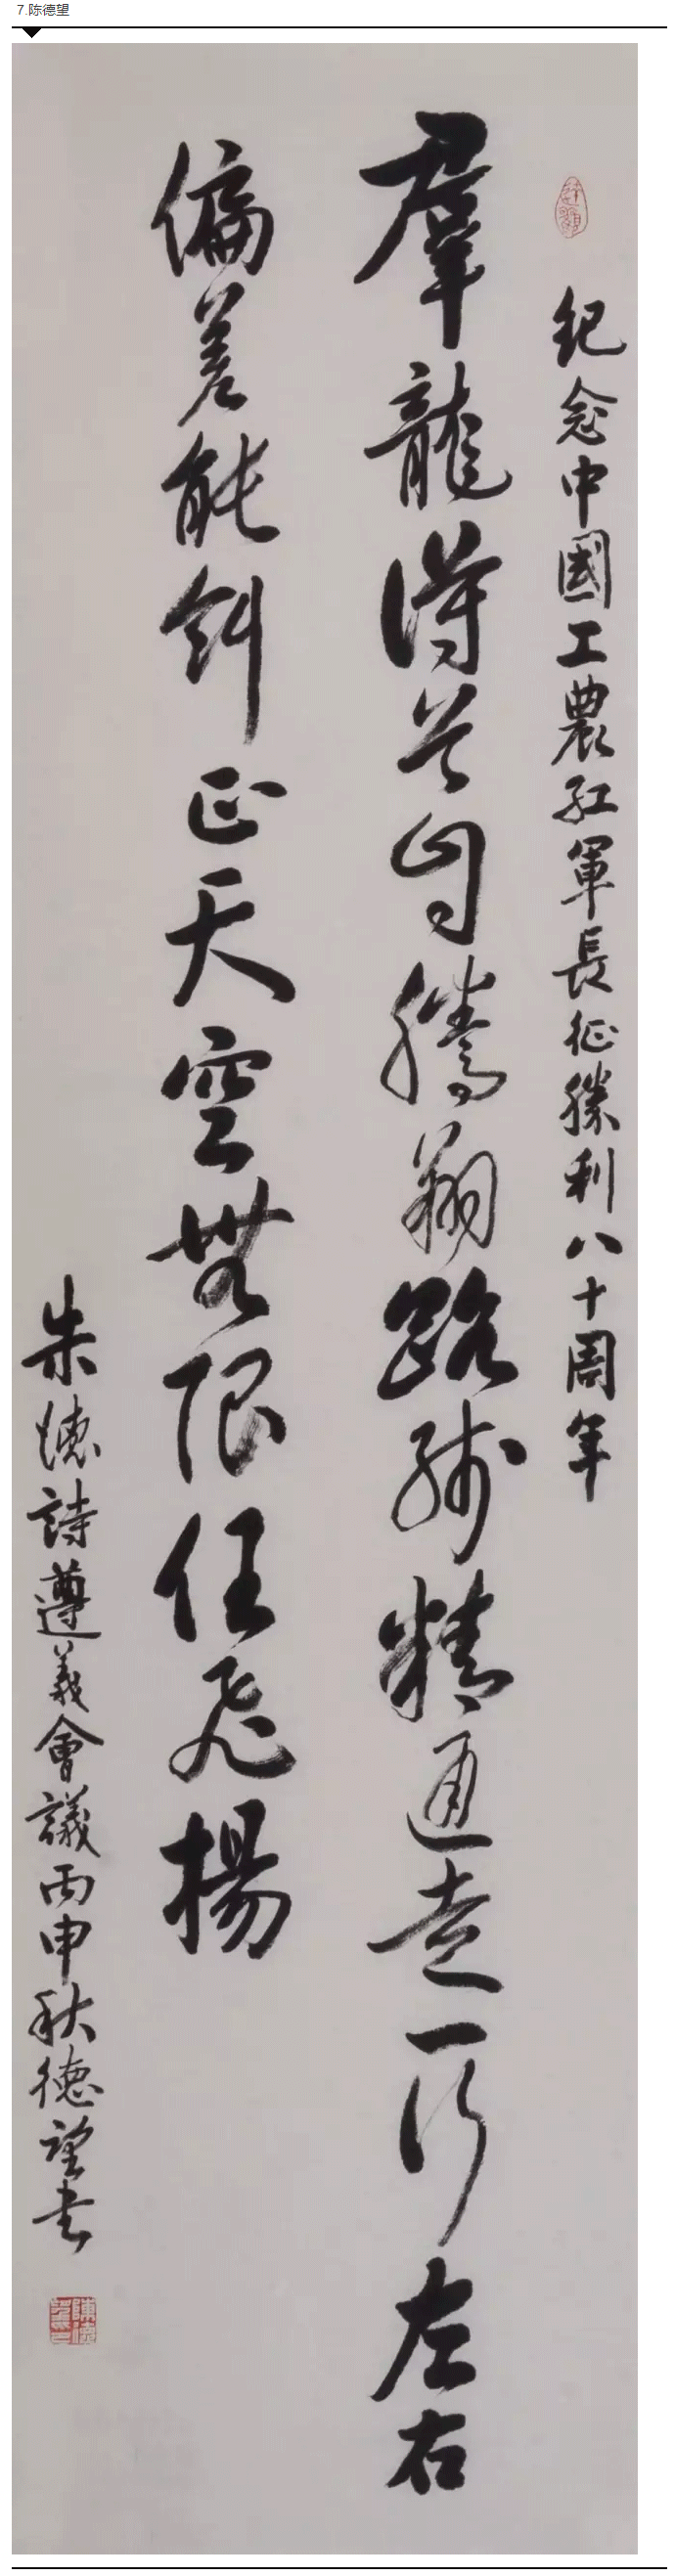 7.陈德望
纪念中國工農红軍長征勝利八十周年
羣龍得首自騰翔路线精通走一行左右
偏差能糾正天空無限任飛揚
朱德詩遵義會議丙申秋德望书